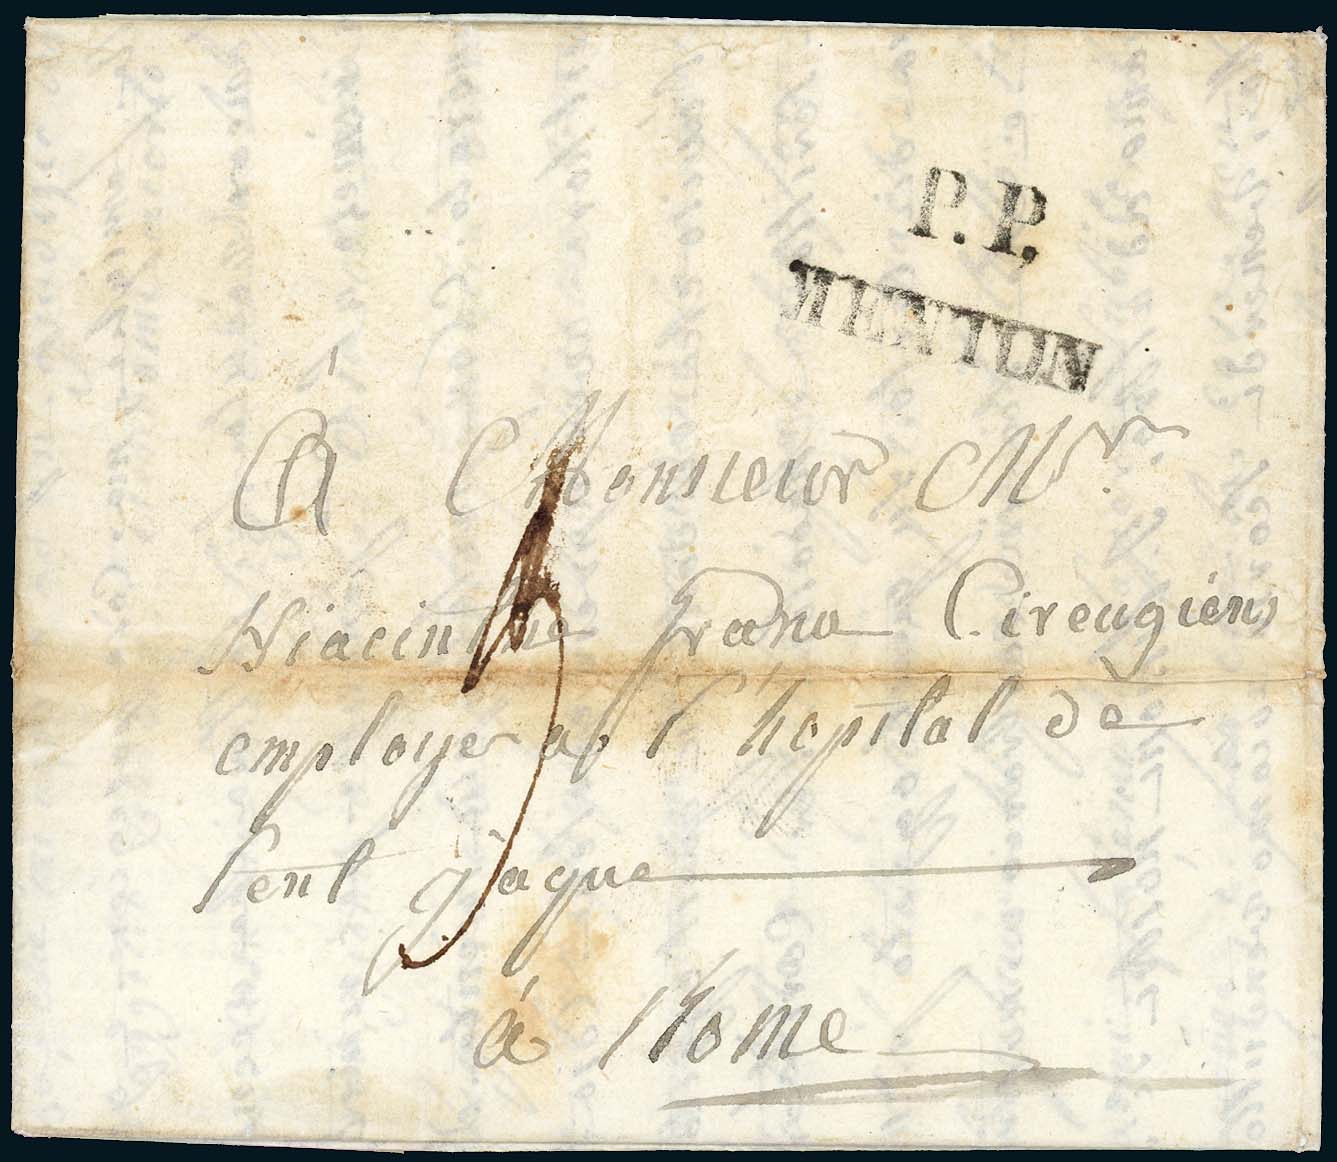 P.P.
MENTON
À Monsieur Mr
Hiacinthe frana Cireugien
employe a l'hôpital de
sent jaque
à Rome